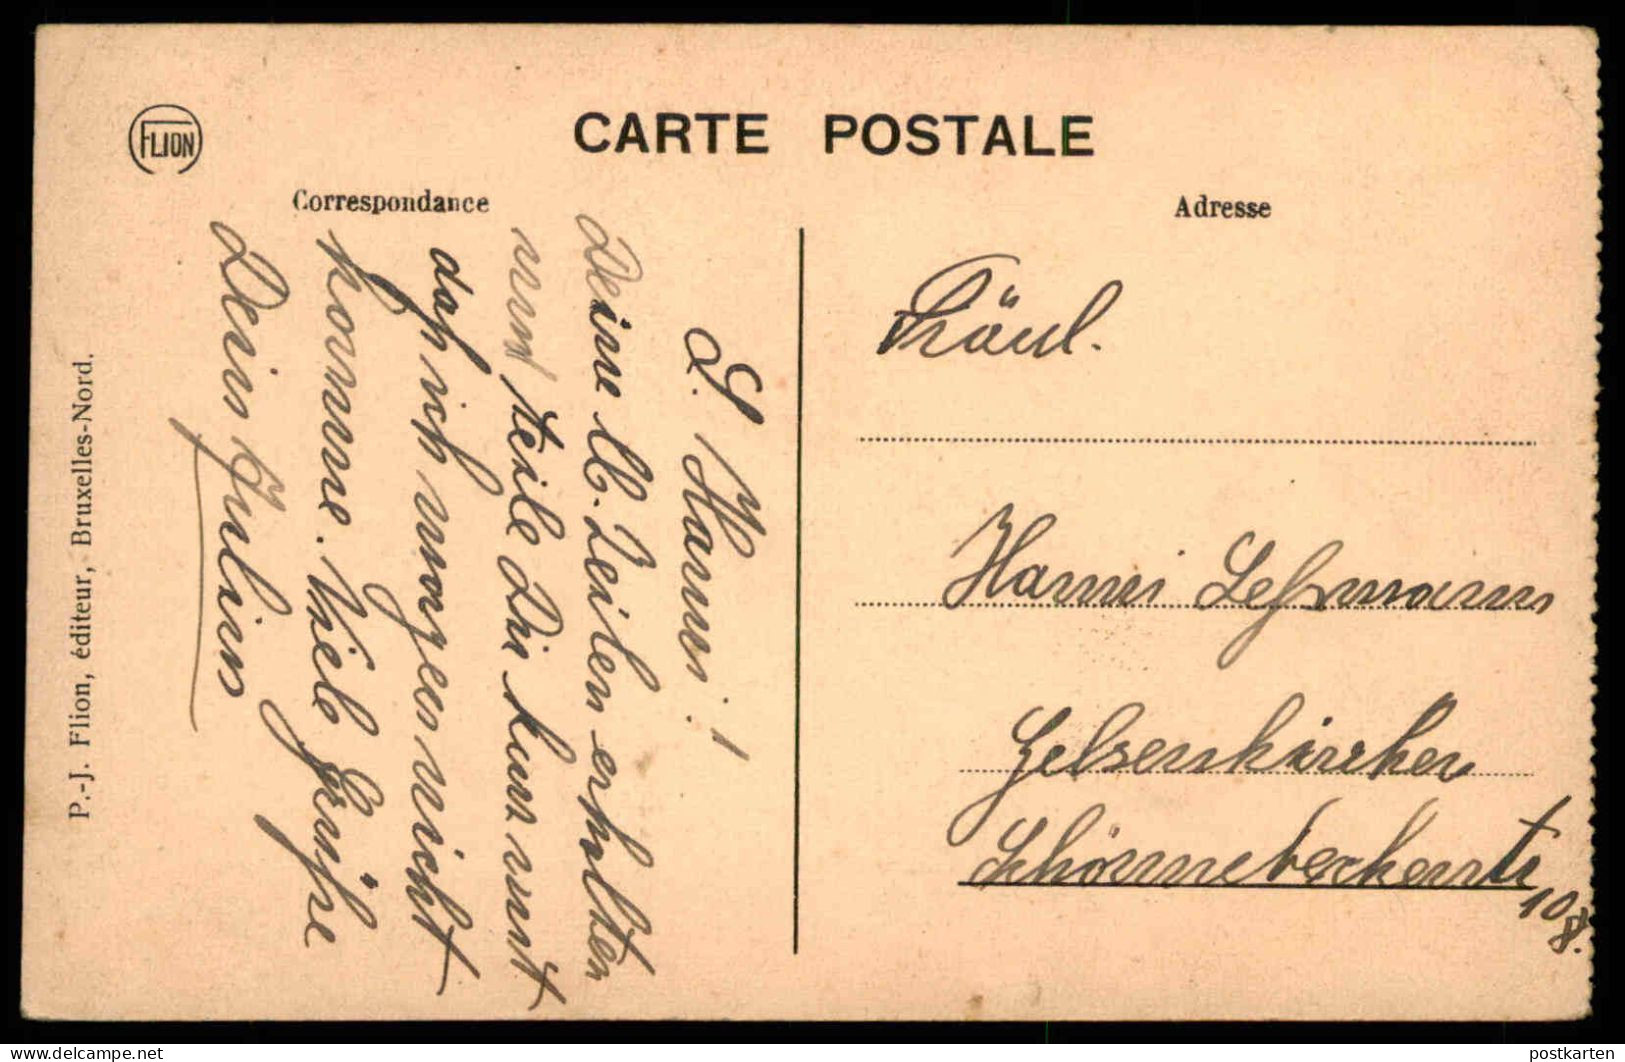 FLION
CARTE POSTALE
Correspondance
Adresse
L. Hanni!
Deine lb. Zeilen erhalten
und teile Dir kurz mit
daß ich morgen nicht
komme. Viele Grüße
Dein Julius
Fräul.
Hanni Lehmann
Gelsenkirchen
108.
P.-J. Flion, éditeur, Bruxelles-Nord.
postkarten